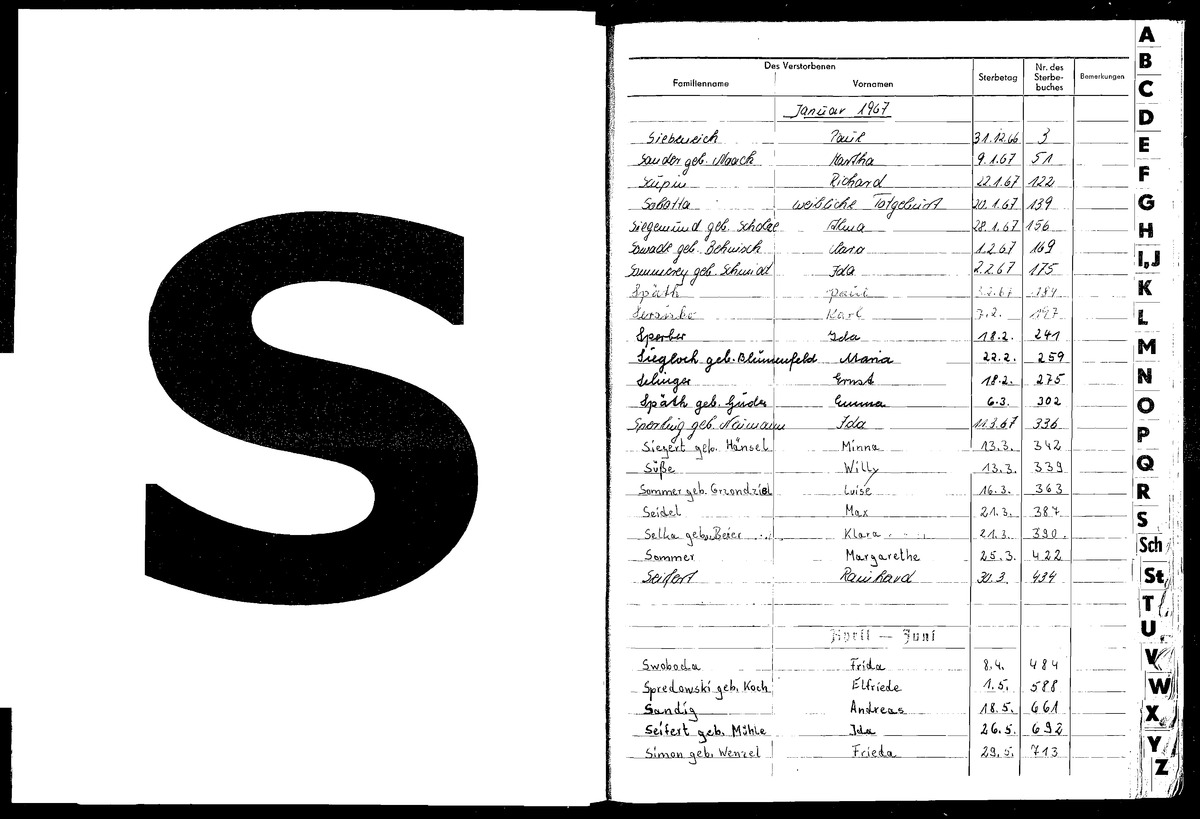 S
Des Verstorbenen
Familienname Vornamen Sterbetag Nr. des Sterbe-buches Bemerkungen
Januar 1967
Siebeneich Paul 31.12.66 3
Sander geb. Noack Martha 9.1.67 51
Richard 22.1.67 122
Sabotta weibliche Totgeburt 20.1.67 139
Siegemund geb. Scholze Alma 28.1.67 156
Sowade geb. Behnisch Clara 1.2.67 169
Sommerey geb. Schmidt Ida 2.2.67 175
Späth Paul 184
Karl 7.2. 197
Sperber Ida 18.2. 241
Siegloch geb. Blumenfeld Maria 22.2. 259
Selinger Ernst 18.2. 275
Späth geb. Guder Emma 6.3. 302
Sperling geb. Naumann Ida 11.3.67 336
Siegert geb. Hänsel Minna 13.3. 342
Süße Willy 13.3. 339
Sommer geb. Grzondziel Luise 16.3. 363
Seidel Max 21.3. 387
Selka geb. Beier Klara 21.3. 390.
Sommer Margarethe 25.3. 422
Seifert Reinhard 30.3. 434
April — Juni
Swoboda Frida 8.4. 484
Spredowski geb. Koch Elfriede 1.5. 588
Sandig Andreas 18.5. 661
Seifert geb. Mühle Ida 26.5. 692
Simon geb. Wenzel Frieda 29.5. 713
A
B
C
D
E
F
G
H
I,J
K
L
M
N
O
P
Q
R
S
Sch
St
T
U
V
W
X
Y
Z